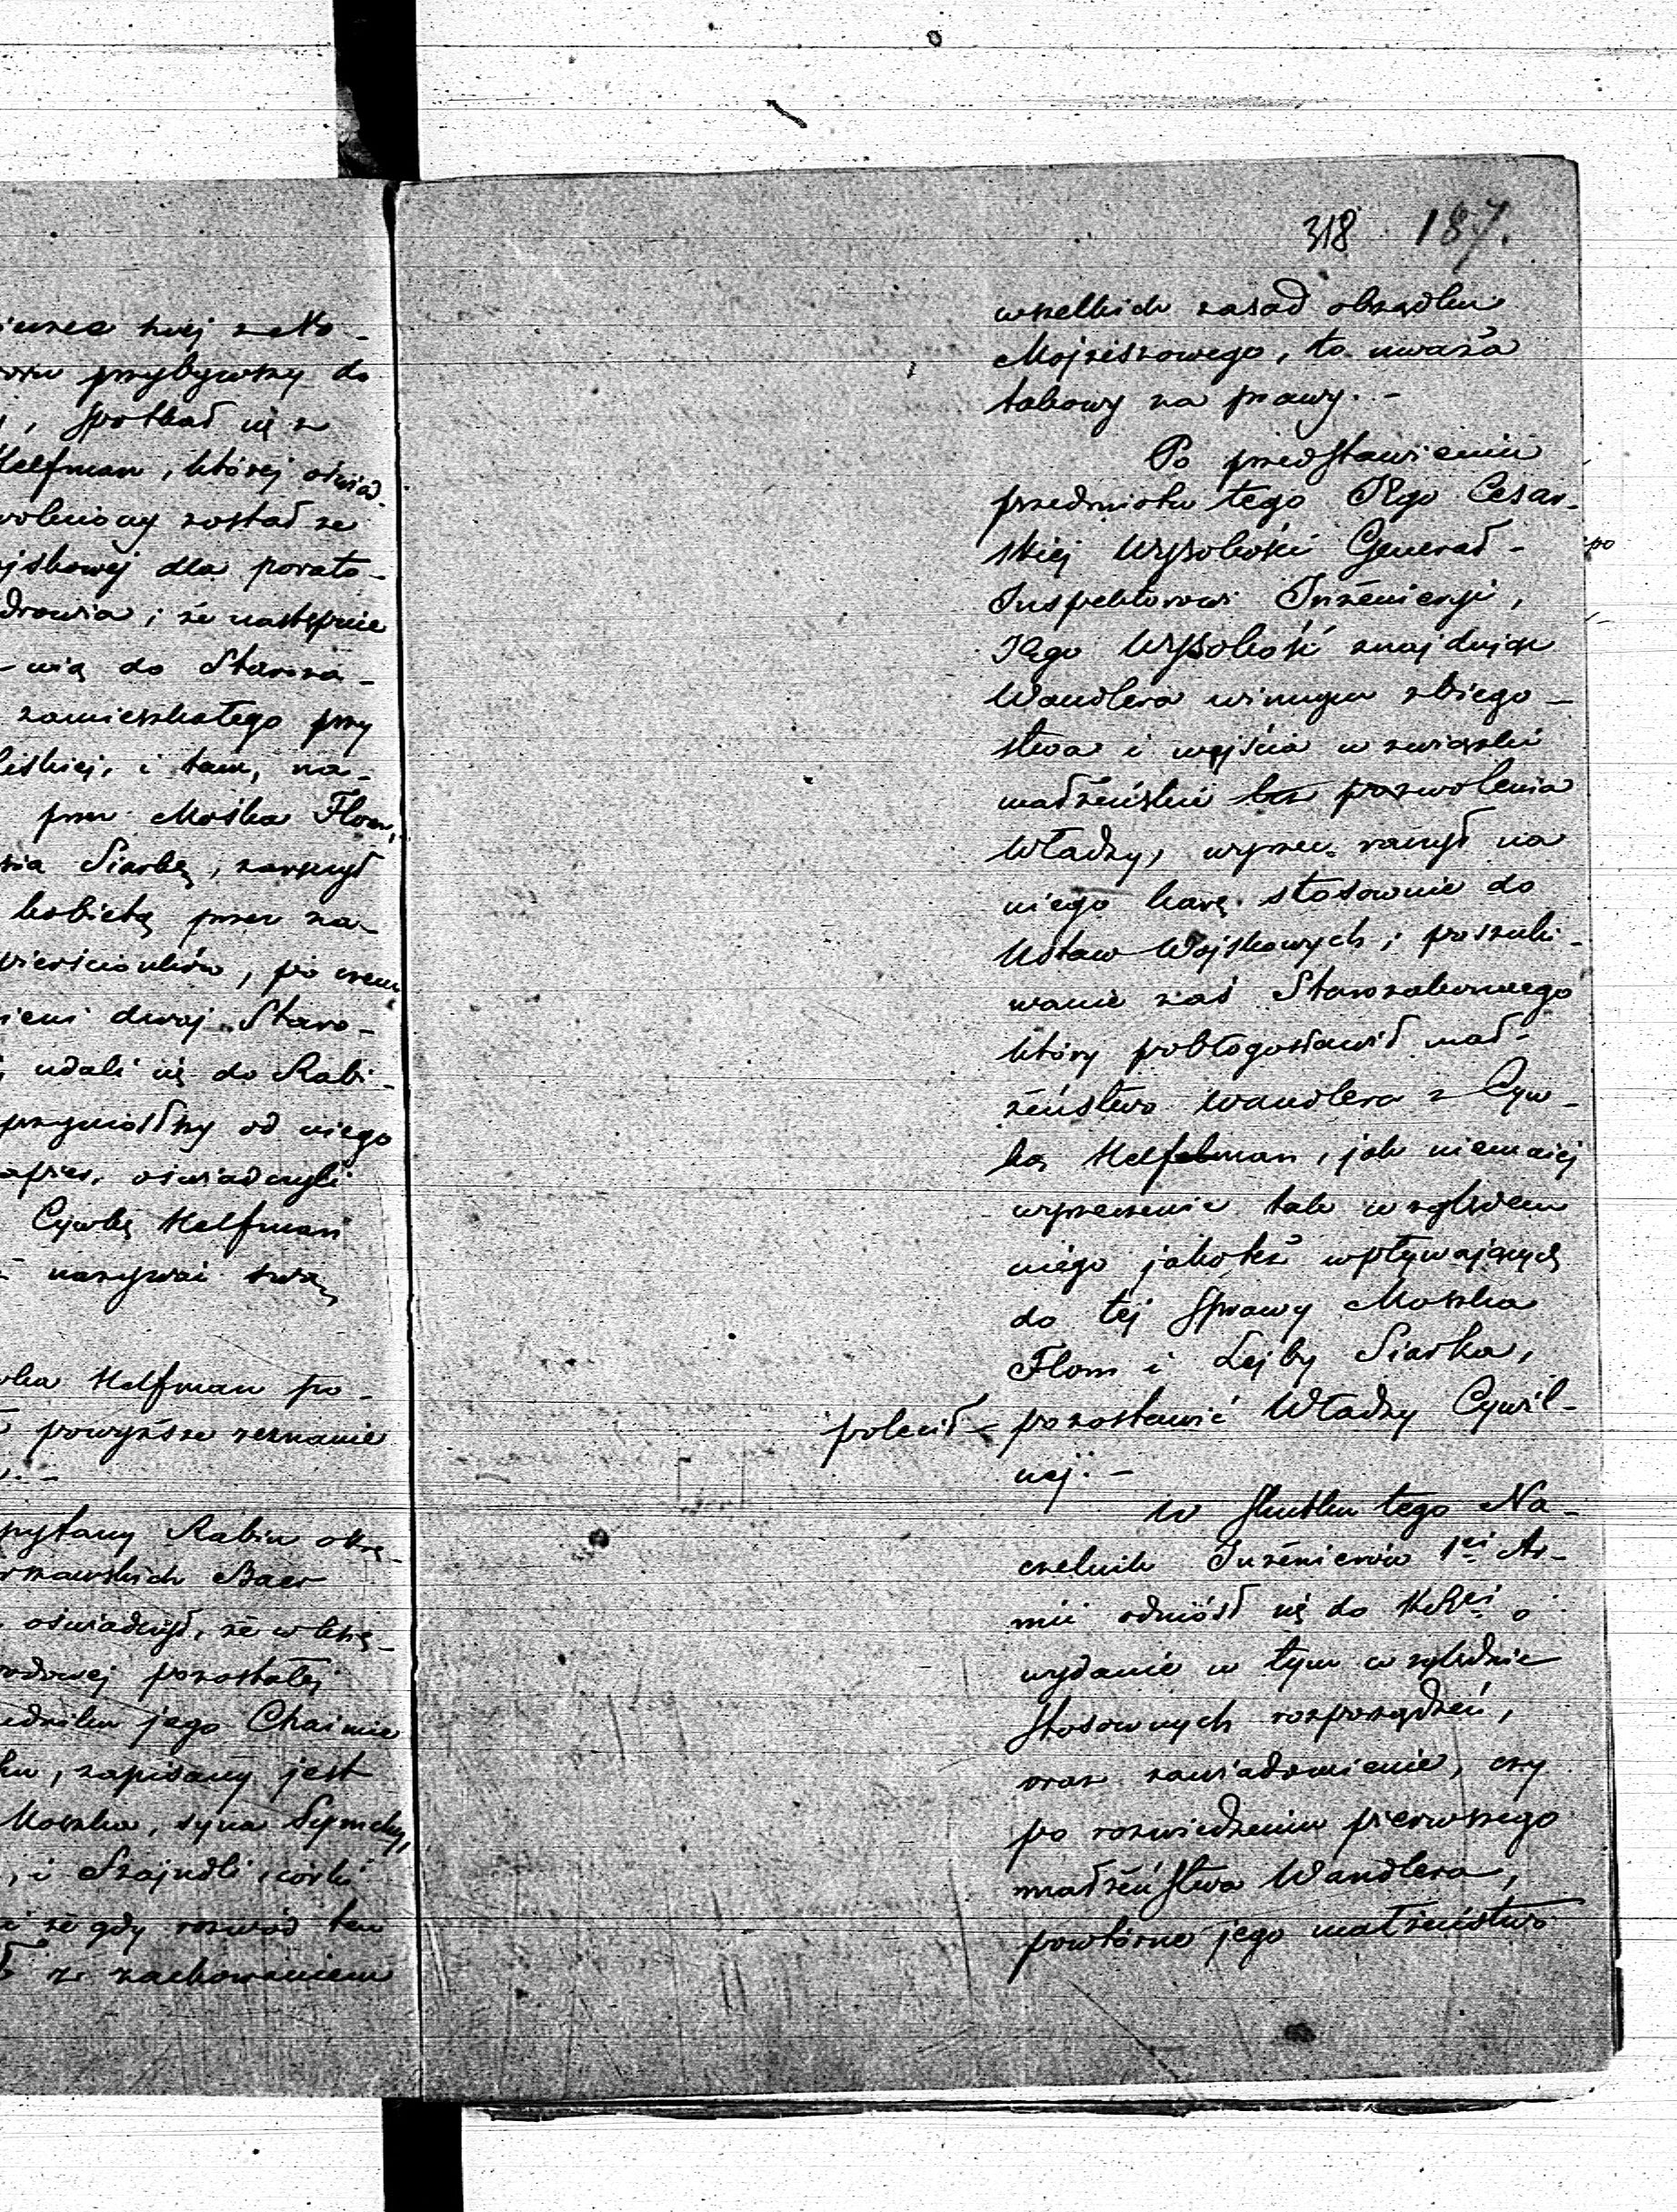 kiej z No-
przybywszy do
, spotkał się z
Helfman, której oświad-
został ze
dla porato-
drowia; że następnie
nią do Staroza-
zamieszkałego przy
i tam, na-
przez Mośka Flom,
Siarkę, zawarł
kobietą przez za-
pierścionków, po czem
dwaj Staro-
udali się do Rabi-
przyniosłszy od niego
oświadczyli
Cywkę Helfman
nazywać swą
Helfman po-
powyższe zeznanie
pytany Rabin okrę-
Baer
oświadczył, że w księ-
pozostałej
jego Chaimie
, zapisany jest
Moszka, syna Symchy,
, i Szajndli, córki
i że gdy rozwód ten
z zachowaniem
318 187.
wszelkich zasad obrządku
Mojżeszowego, to uważa
takowy za prawy. -
Po przedstawieniu
przedmiotu tego JEgo Cesar-
skiej Wysokości Generał-
Inspektorowi Inżenierji,
JEgo Wysokość znajdując
Wandlera winnym zbiego-
stwa i wejścia w związki
małżeńskie bez pozwolenia
Władzy, wyrzec raczył na
niego karę stosownie do
Ustaw Wojskowych; poszuki-
wanie zaś Starozakonnego
który pobłogosławił mał-
żeństwo Wandlera z Cyw-
ką Helfman, jak niemniej
wyrzeczenie tak względem
niego jakoteż wpływających
do tej sprawy Moszka
Flom i Lejby Siarka,
polecił pozostawić Władzy Cywil-
nej. -
W skutku tego Na-
czelnik Inżenierów 1ej Ar-
mii odniósł się do KRej o
wydanie w tym względzie
stosownych rozporządzeń,
oraz zawiadomienie, czy
po rozwiedzeniu pierwszego
małżeństwa Wandlera,
powtórne jego małżeństwo